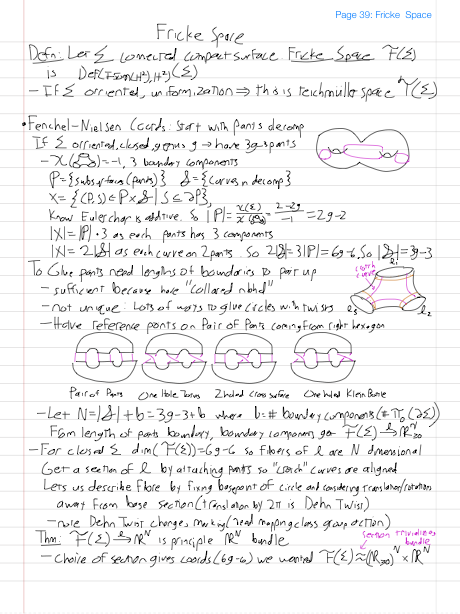 Page 39: Fricke Space
Fricke Space
Defn: Let Σ connected compact surface. Fricke Space F(Σ)
is Def(Isom(H²), H²)(Σ)
- If Σ orriented, uniformization ⇒ this is teichmuller space T(Σ)
• Fenchel-Nielsen Coords: Start with pants decomp
If Σ orriented, closed, genus g → have 3g-3 pants
- χ( )=-1, 3 boundary components
P={subsurfaces (pants)} S={curves in decomp}
X={(P,S)∈P×S | S⊆∂P},
Know Euler char is additive. So |P|=χ(Σ)/χ( )=2-2g/-1=2g-2
|X|=|P|·3 as each pants has 3 components
|X|=2|S| as each curve on 2 pants. So 2|S|=3|P|=6g-6, So |S|=3g-3
To Glue pants need lengths of boundaries to pair up
- sufficient because have "collared nbhd"
- not unique: Lots of ways to glue circles with twists
- Have reference points on Pair of Pants coming from right hexagon
crotch curve
l₁
l₃
l₂
Pair of Pants One Hole Torus 2 holed cross surface One holed Klein Bottle
- Let N=|S|+b=3g-3+b where b=# boundary components (# π₀(∂Σ))
From length of pants boundary, boundary components get F(Σ) →l R^N_{>0}
- For closed Σ dim(F(Σ))=6g-6 so fibers of l are N dimensional
Get a section of l by attaching pants so "crotch" curves are aligned
Lets us describe fibre by fixing basepoint of circle and considering translation/rotations
away from base section (translation by 2π is Dehn Twist)
- note Dehn Twist changes marking (read mapping class group action)
Thm: F(Σ) →l R^N is principle R^N bundle
section trivializes bundle
- choice of section gives coords (6g-6) we wanted F(Σ)≈(R_{>0})^N × R^N